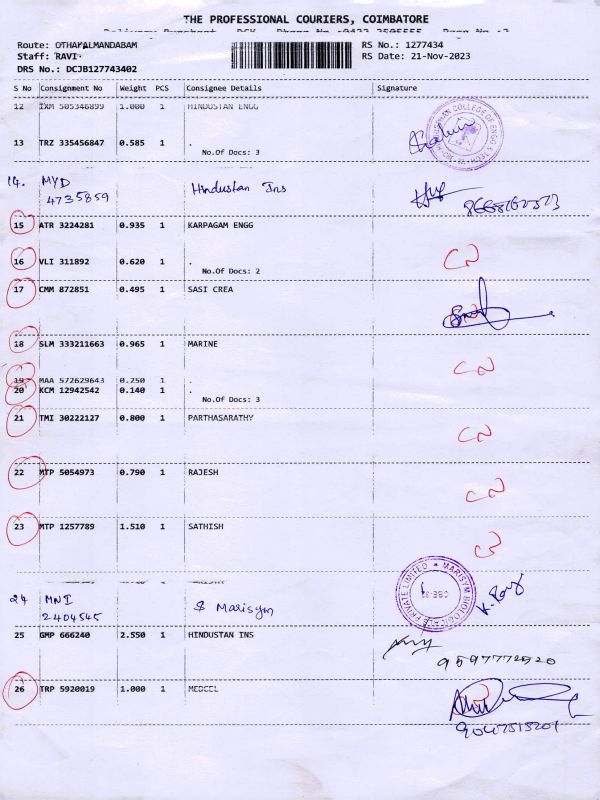 THE PROFESSIONAL COURIERS, COIMBATORE
Route: OTHAKALMANDABAM
Staff: RAVI
DRS No.: DCJB127743402
RS No.: 1277434
RS Date: 21-Nov-2023
S No Consignment No Weight PCS Consignee Details Signature
12 IXM 505346899 1.000 1 HINDUSTAN ENGG
13 TRZ 335456847 0.585 1 .
No.Of Docs: 3
14. MYD Hindustan Ins
4735859
15 ATR 3224281 0.935 1 KARPAGAM ENGG
16 VLI 311892 0.620 1 .
No.Of Docs: 2
CN
17 CMM 872851 0.495 1 SASI CREA
18 SLM 333211663 0.965 1 MARINE
CN
19 MAA 572629643 0.250 1 .
20 KCM 12942542 0.140 1 .
No.Of Docs: 3
21 TMI 30222127 0.800 1 PARTHASARATHY
CN
22 MTP 5054973 0.790 1 RAJESH
CN
23 MTP 1257789 1.510 1 SATHISH
24 MNI Marisym
2404545
MARISYM BIOLOGICALS PRIVATE LIMITED
25 GMP 666240 2.550 1 HINDUSTAN INS
26 TRP 5920019 1.000 1 MEDCEL